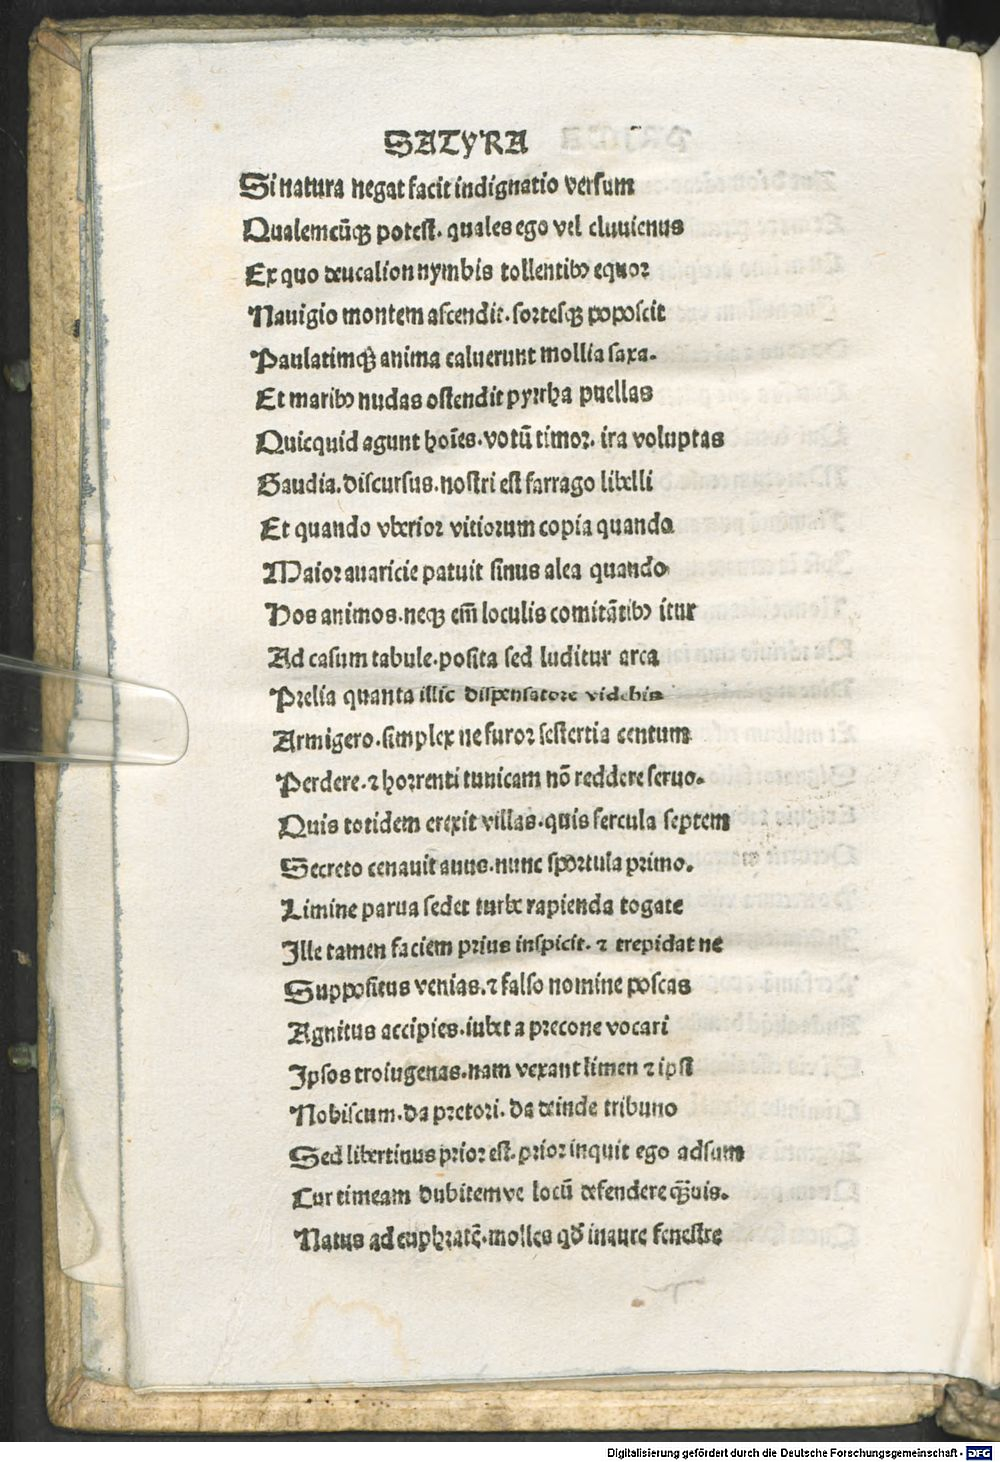 SATYRA
Si natura negat facit indignatio versum
Qualemcũqꝫ potest. quales ego vel cluuienus
Ex quo deucalion nymbis tollentibꝰ equor
Nauigio montem ascendit. sortesqꝫ poposcit
Paulatimqꝫ anima caluerunt mollia saxa.
Et maribꝰ nudas ostendit pyrrha puellas
Quicquid agunt hoĩes. votũ timor. ira voluptas
Gaudia. discursus. nostri est farrago libelli
Et quando vberior vitiorum copia quando
Maior auaricie patuit sinus alea quando
Hos animos. neqꝫ em̃ loculis comitãtibꝰ itur
Ad casum tabule. posita sed luditur arca
Prelia quanta illic dispensatore videbis
Armigero. simplex ne furor sestertia centum
Perdere. ⁊ horrenti tunicam nõ reddere seruo.
Quis totidem erexit villas. quis fercula septem
Secreto cenauit auus. nunc sportula primo.
Limine parua sedet turbe rapienda togate
Ille tamen faciem prius inspicit. ⁊ trepidat ne
Suppositus venias. ⁊ falso nomine poscas
Agnitus accipies. iubet a precone vocari
Ipsos troiugenas. nam vexant limen ⁊ ipsi
Nobiscum. da pretori. da deinde tribuno
Sed libertinus prior est. prior inquit ego adsum
Cur timeam dubitemve locũ defendere q̃uis.
Natus ad euphratẽ. molles qđ in aure fenestre
Digitalisierung gefördert durch die Deutsche Forschungsgemeinschaft - DFG